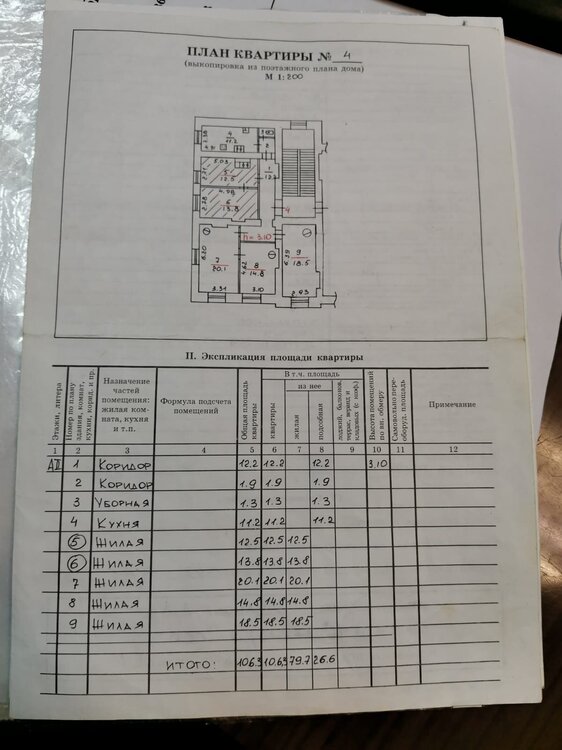 ПЛАН КВАРТИРЫ № 4
(выкопировка из поэтажного плана дома)
М 1:200
4
11.2
2.38
4.91
3
2
5.03
5
12.5
1
12.2
4.98
6
13.8
2.78
4
h = 3.10
6.20
7
20.1
4.62
8
14.8
6.39
9
18.5
3.31
3.10
2.93
II. Экспликация площади квартиры
Этажи, литера
Номер по плану здания, комнат, кухни, корид. и пр.
Назначение частей помещения: жилая комната, кухня и т.п.
Формула подсчета помещений
Общая площадь квартиры
В т.ч. площадь
квартиры
из нее
жилая
подсобная
лоджий, балконов, террас, веранд и кладовых (с коэф.)
Высота помещений по вн. обмеру
Самовольно переоборуд. площадь
Примечание
1 2 3 4 5 6 7 8 9 10 11 12
АII 1 Коридор 12.2 12.2 12.2 3.10
2 Коридор 1.9 1.9 1.9
3 Уборная 1.3 1.3 1.3
4 Кухня 11.2 11.2 11.2
5 Жилая 12.5 12.5 12.5
6 Жилая 13.8 13.8 13.8
7 Жилая 20.1 20.1 20.1
8 Жилая 14.8 14.8 14.8
9 Жилая 18.5 18.5 18.5
ИТОГО: 106.3 106.3 79.7 26.6